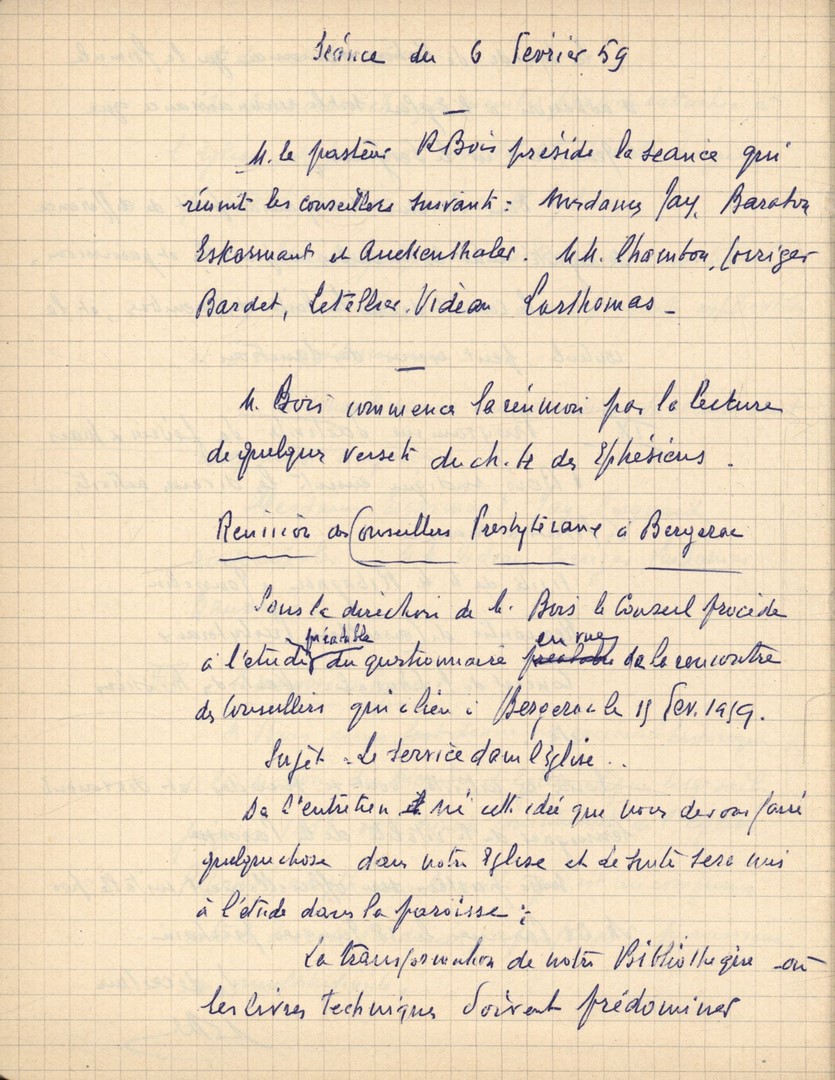 Séance du 6 Février 59
M. le pasteur R Bois préside la séance qui
réunit les conseillers suivants : Mesdames Jay, Baraton
et Auckenthaler. M.M. Chambon,
Bardet, Letellier. Vidéau Larthomas _
M. Bois commence la réunion par la lecture
de quelques versets du ch. de des Ephésiens.
Réunion des Conseillers Presbytéraux à Bergerac
Sous la direction de M. Bois le Conseil procède
à l'étude préalable du questionnaire préalable en vue de la rencontre
des Conseillers qui a lieu à Bergerac le 15 Fev. 1959.
Sujet = Le Service dans l'Eglise..
De l'entretien est né cette idée que nous devons faire
quelque chose dans notre Eglise et de suite sera mis
à l'étude dans la paroisse :
La transformation de notre Bibliothèque où
les livres techniques doivent prédominer